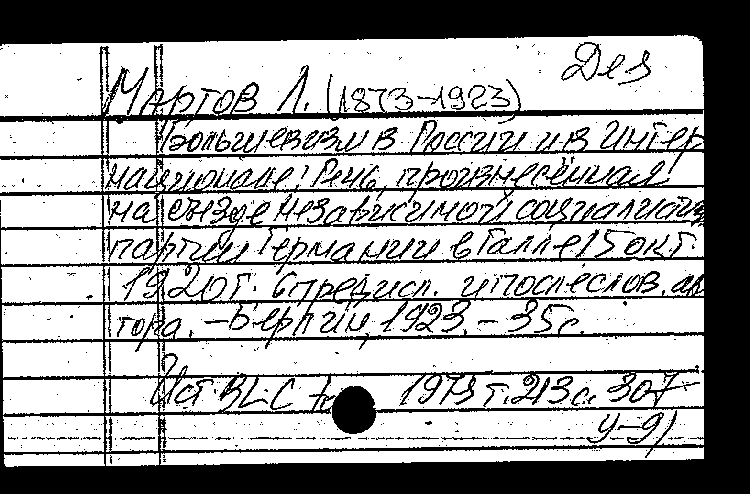 Дез
Мартов Л. (1873-1923)
Большевизм в России и в Интер
национале: Речь, произнесённая
на съезде независимой социалистич
партии Германии в Галле 15 окт.
1920 г. С предисл. и послеслов. ав
тора. - Берлин, 1923. - 35 с.
Ист BLC 1973 т. 213 с. 307
У-9)